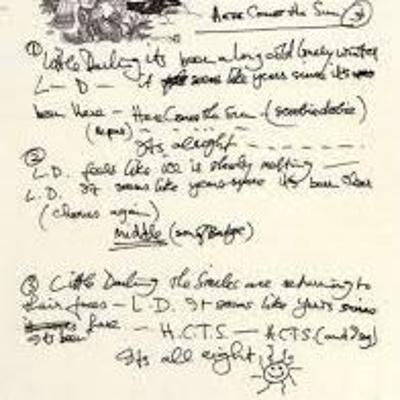 Here Comes the Sun
① Little Darling its been a long cold lonely winter
L - D - it seems like years since its
been here - Here Comes the Sun - (scoobiedobie)
(repeat)
Its alright
② L.D. feels like ice is slowly melting
L.D. It seems like years since its been clear
(chorus again)
Middle (son of Badge)
③ Little Darling the Smiles are returning to
their faces - L.D. It seems like years since
its been here - H.C.T.S. - H.C.T.S. (and I say)
Its all right